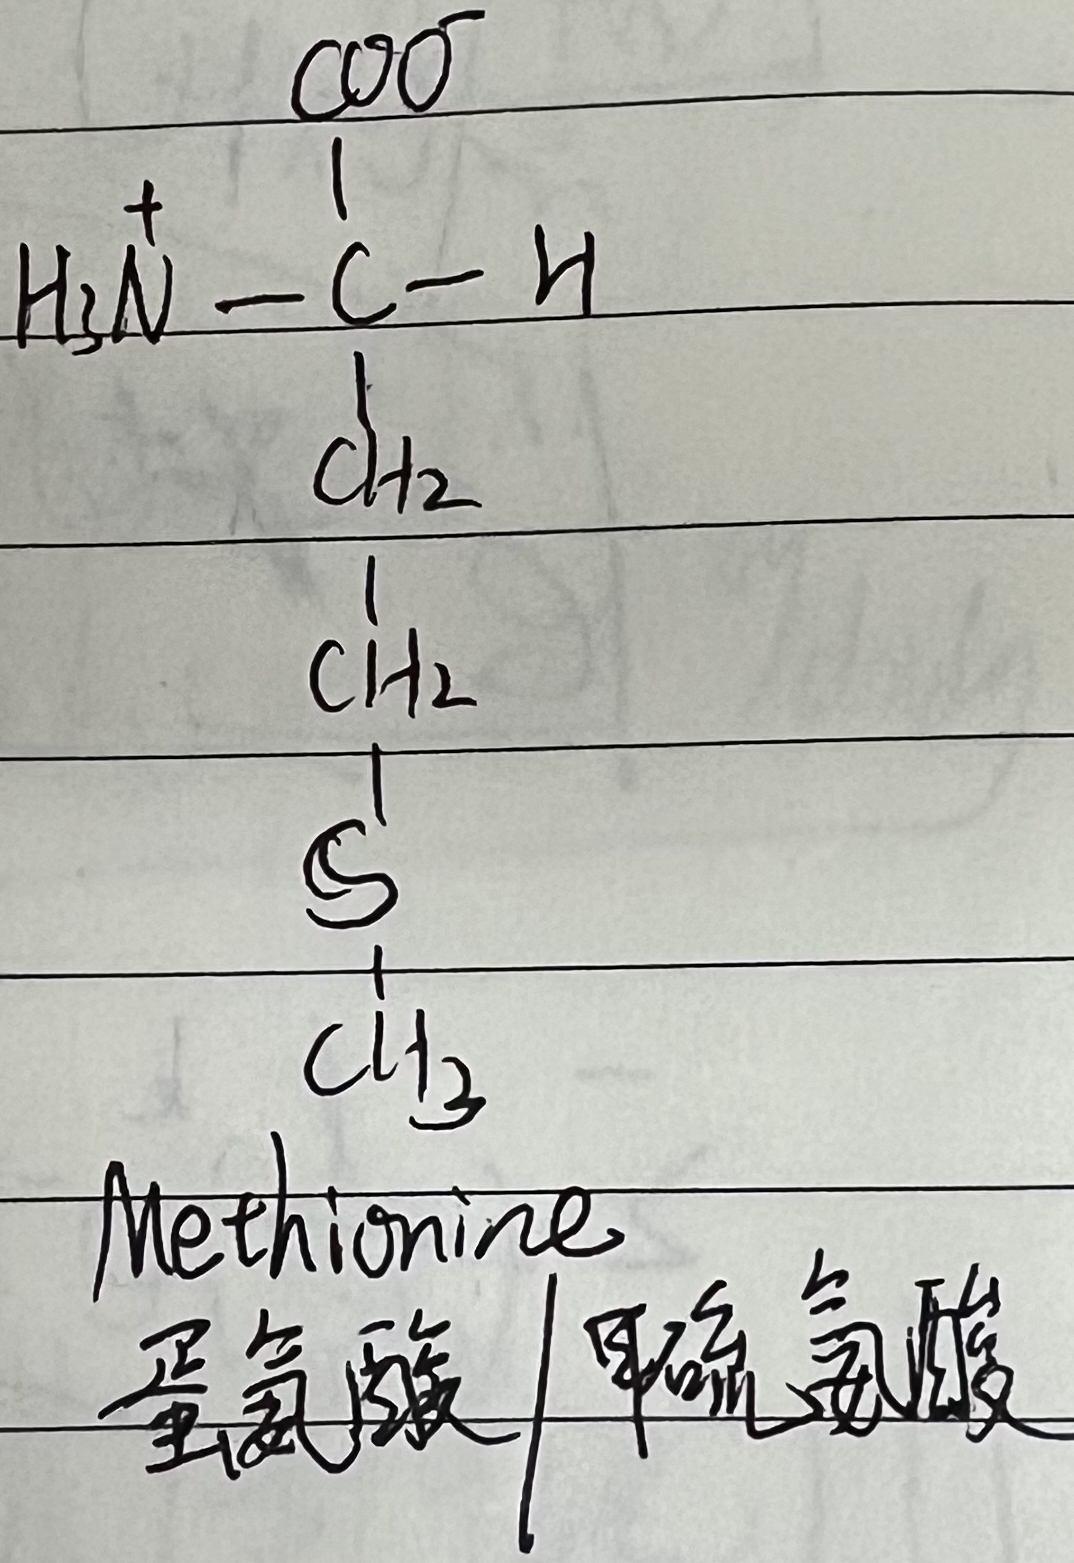 COO⁻
|
H₃N⁺ — C — H
|
CH₂
|
CH₂
|
S
|
CH₃
Methionine
蛋氨酸/甲硫氨酸